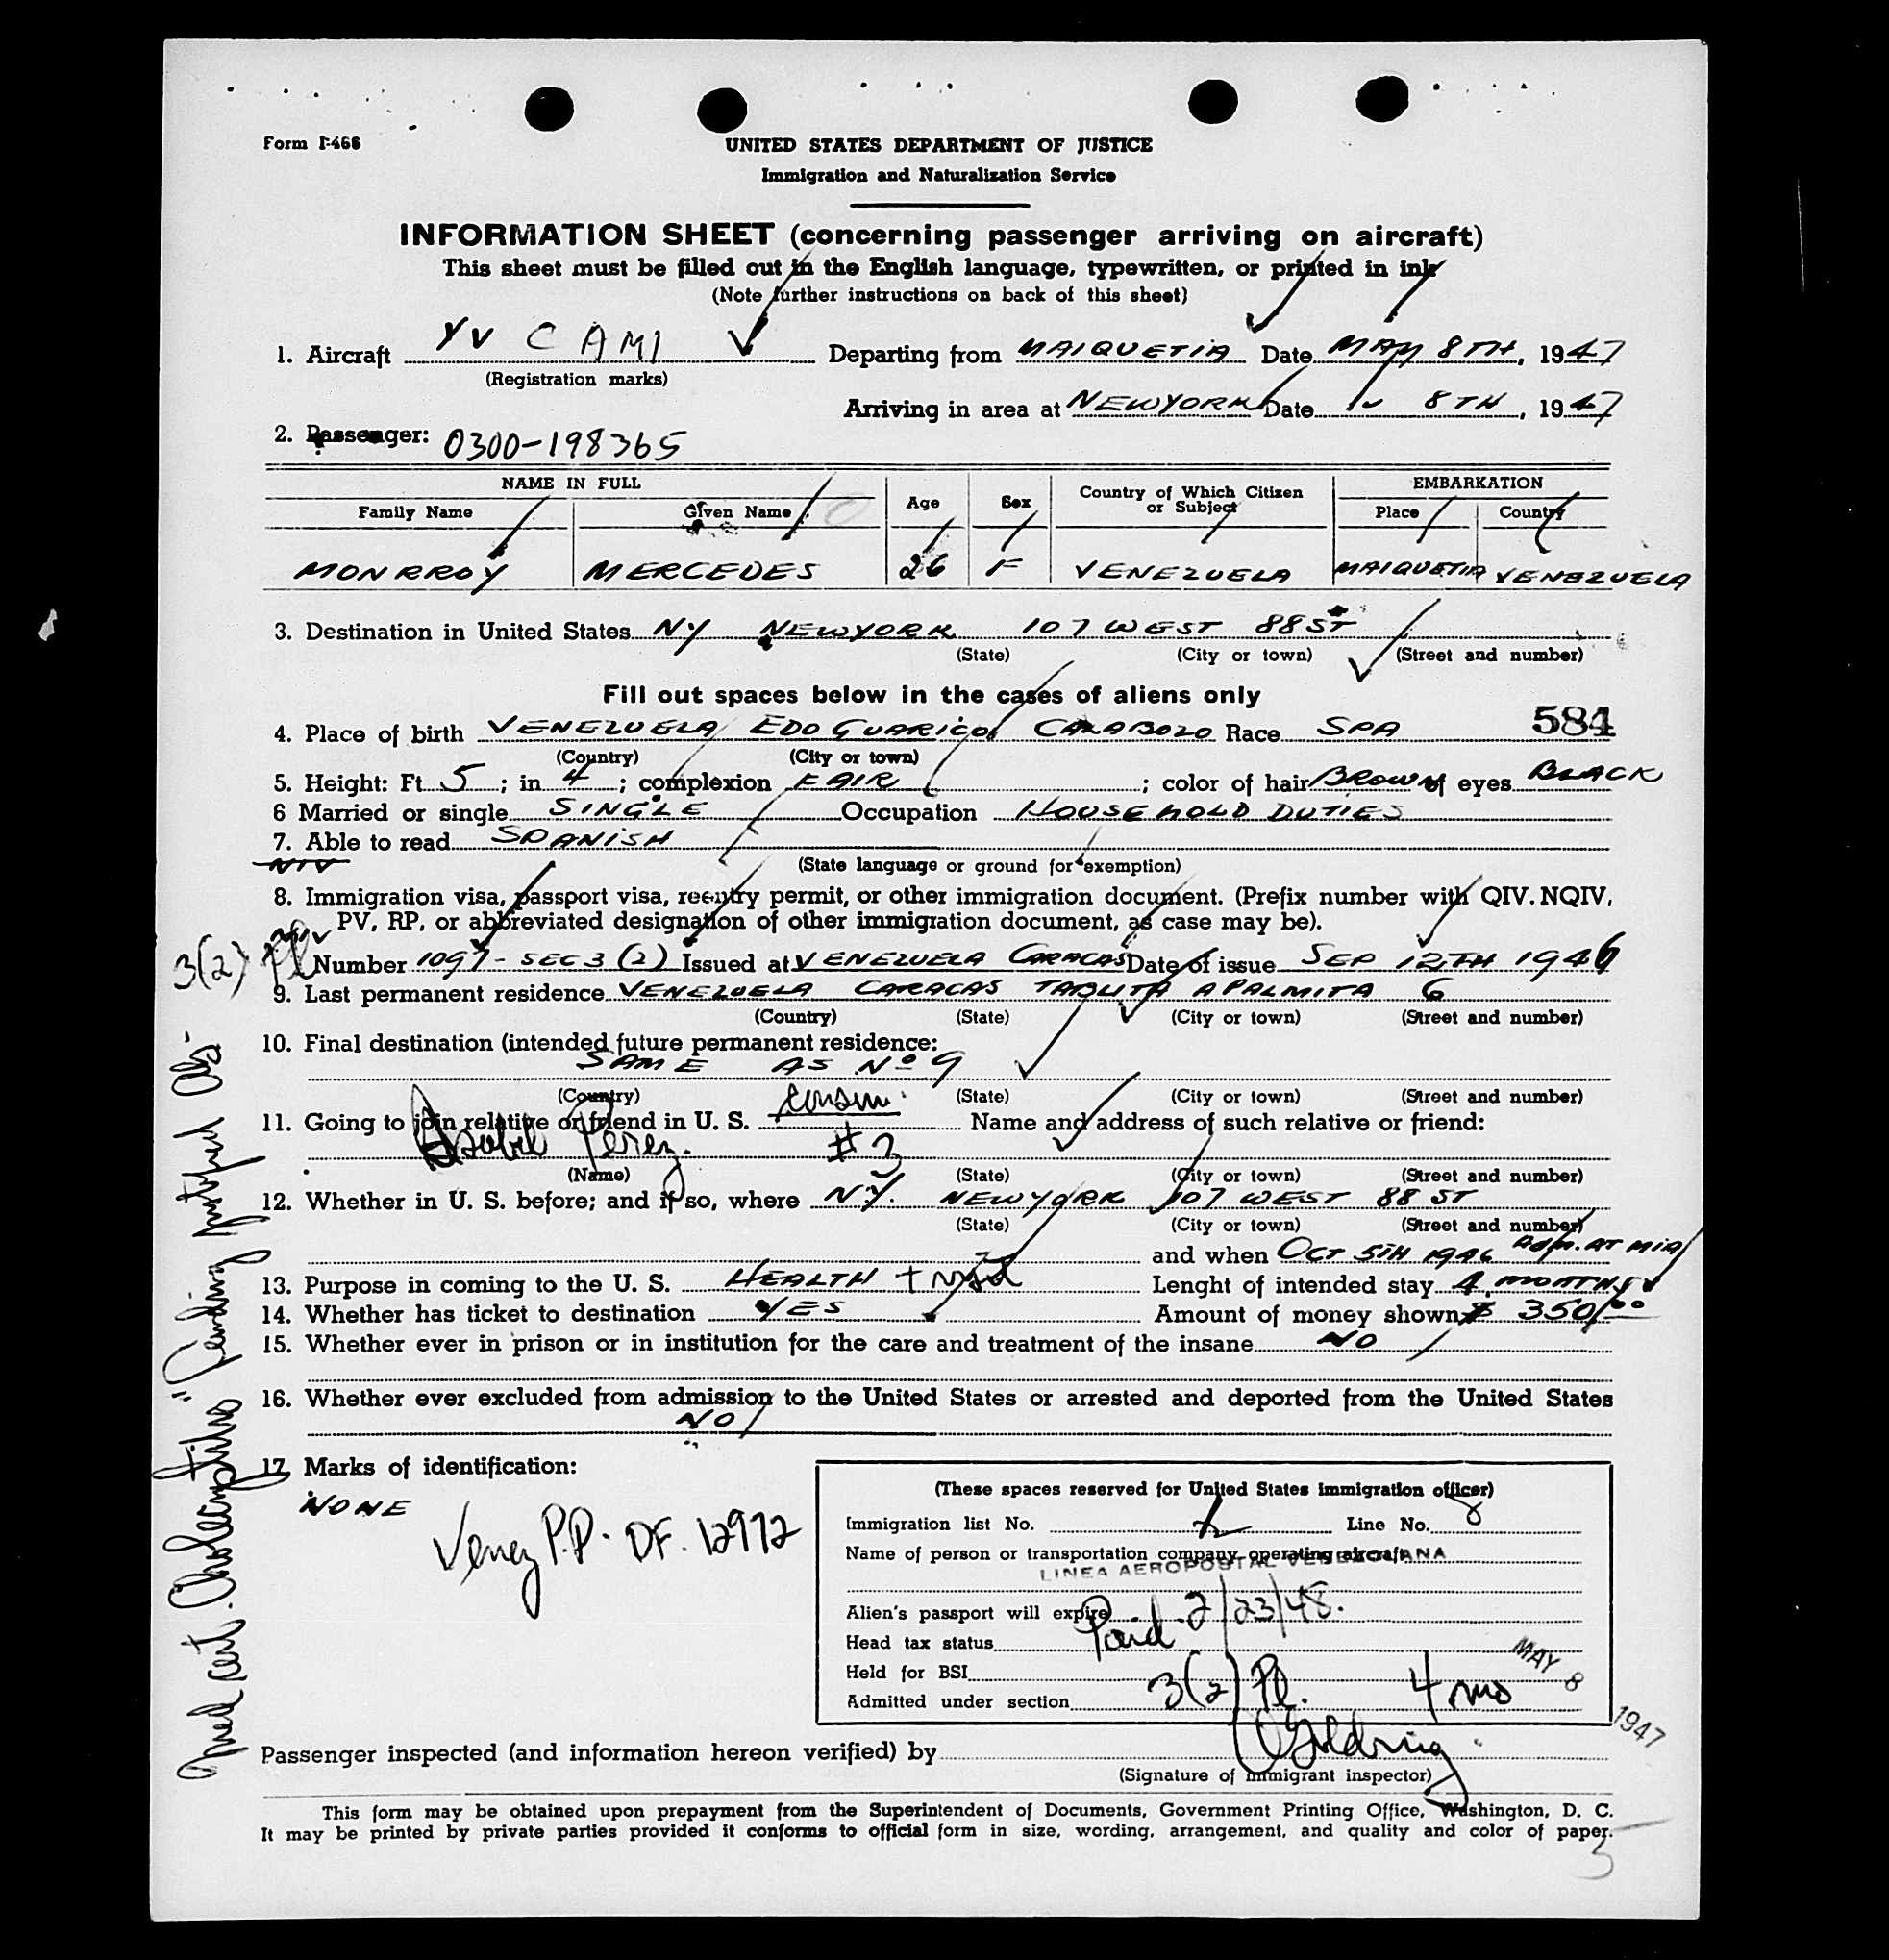 Form I-466
UNITED STATES DEPARTMENT OF JUSTICE
Immigration and Naturalization Service
INFORMATION SHEET (concerning passenger arriving on aircraft)
This sheet must be filled out in the English language, typewritten, or printed in ink
(Note further instructions on back of this sheet)
1. Aircraft YV C AMI Departing from MAIQUETIA Date MAY 8TH, 1947
(Registration marks)
Arriving in area at NEWYORK Date 8TH, 1947
2. Passenger: 0300-198365
NAME IN FULL Age Sex Country of Which Citizen or Subject EMBARKATION
Family Name Given Name Place Country
MONRROY MERCEDES 26 F VENEZUELA MAIQUETIA VENEZUELA
3. Destination in United States NY NEWYORK 107 WEST 88 ST
(State) (City or town) (Street and number)
Fill out spaces below in the cases of aliens only
4. Place of birth VENEZUELA EDO GUARICO CALABOZO Race SPA 584
(Country) (City or town)
5. Height: Ft 5; in 4; complexion FAIR; color of hair BROWN of eyes BLACK
6 Married or single SINGLE Occupation HOUSEHOLD DUTIES
7. Able to read SPANISH
NIV (State language or ground for exemption)
8. Immigration visa, passport visa, reentry permit, or other immigration document. (Prefix number with QIV. NQIV,
PV, RP, or abbreviated designation of other immigration document, as case may be).
3(2) Pl Number 1097 - SEC 3 (2) Issued at VENEZUELA CARACAS Date of issue SEP 12TH 1946
9. Last permanent residence VENEZUELA CARACAS TABLITA A PALMITA 6
(Country) (State) (City or town) (Street and number)
10. Final destination (intended future permanent residence:
SAME AS Nº 9
(Country) (State) (City or town) (Street and number)
11. Going to join relative or friend in U. S. cousin. Name and address of such relative or friend:
Isabel Perez. #3
(Name) (State) (City or town) (Street and number)
12. Whether in U. S. before; and if so, where N.Y. NEWYORK 107 WEST 88 ST
(State) (City or town) (Street and number)
and when OCT 5TH 1946 ADM. AT MIA
13. Purpose in coming to the U. S. HEALTH + Lenght of intended stay 4 MONTHS
14. Whether has ticket to destination YES Amount of money shown $ 350/00
15. Whether ever in prison or in institution for the care and treatment of the insane NO
16. Whether ever excluded from admission to the United States or arrested and deported from the United States
NO
17 Marks of identification:
NONE
Venez P.P. DF. 12972
(These spaces reserved for United States immigration officer)
Immigration list No. Line No. 8
Name of person or transportation company operating aircraft
LINEA AEROPOSTAL VENEZOLANA
Alien's passport will expire 2/23/48.
Head tax status Paid
Held for BSI
Admitted under section 3(2) Pl. 4 mo
MAY 8 1947
Passenger inspected (and information hereon verified) by Goldring
(Signature of immigrant inspector)
This form may be obtained upon prepayment from the Superintendent of Documents, Government Printing Office, Washington, D. C.
It may be printed by private parties provided it conforms to official form in size, wording, arrangement, and quality and color of paper.
3
Med cert. "Pending